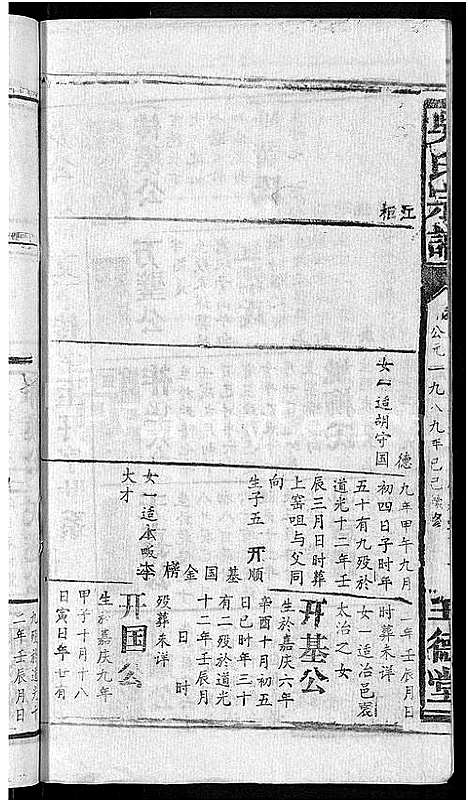 吴氏宗谱
公元一九八九年己巳
五
柜
德
女一适胡守国
九年甲午九月
初四日子时年
五十有九殁於
道光十二年壬
辰三月日时葬
上窑咀与父同
向
生子五 开顺
基国金榜
女一适本畈李
大才
二年壬辰月日
时葬未详
女一适冶邑
太冶之女
开基公
生於嘉庆六年
辛酉十月初五
日巳时年三十
有二殁於道光
十二年壬辰月
日 时
殁葬未详
开国公
生於嘉庆九年
甲子十月十八
日寅日年廿有
九殁於道光十
二年壬辰月日